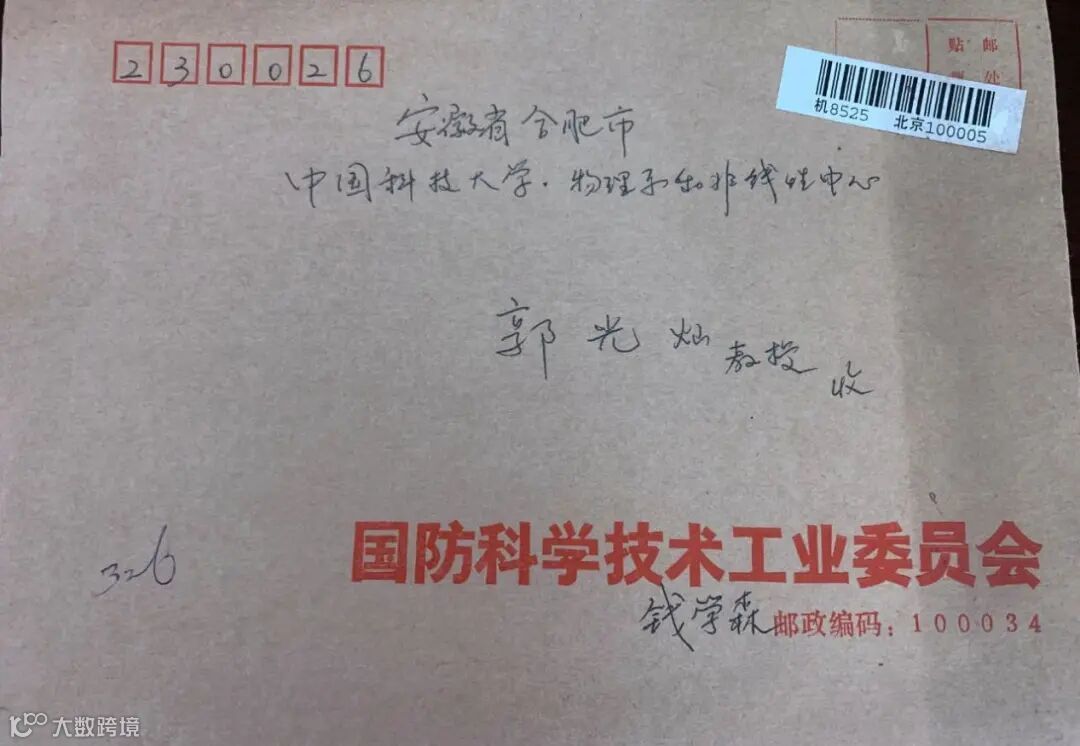 230026
贴 邮
票 处
机8525 北京100005
安徽省合肥市
中国科技大学·物理系和非线性中心
郭光灿教授 收
326
国防科学技术工业委员会
钱学森 邮政编码:100034
大数跨境